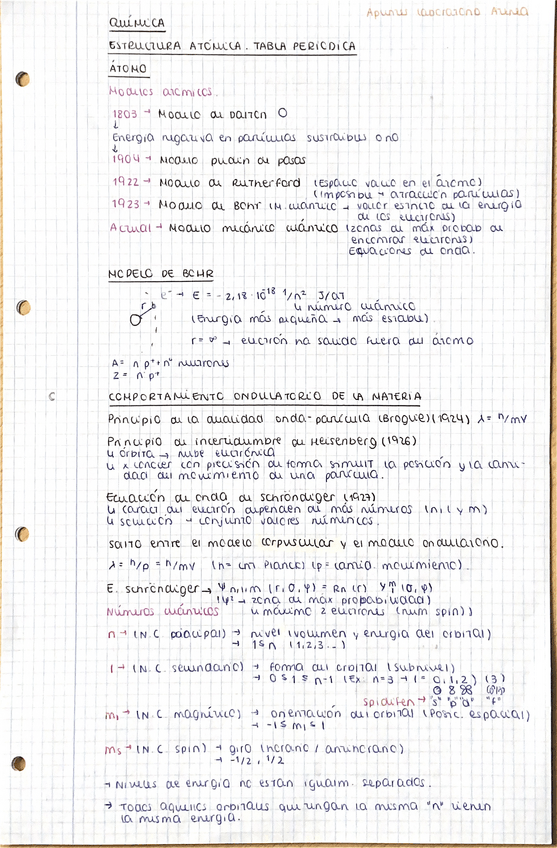 Apuntes Laocracona Aurea
QUÍMICA
ESTRUCTURA ATÓMICA. TABLA PERIÓDICA
ÁTOMO
Modelos atómicos.
1803 → Modelo de Dalton O
↓
Energía negativa en partículas sustraibles o no
↓
1904 → Modelo pudin de pasas
1922 → Modelo de RUTHERFORD (Espacio vacio en el átomo)
(Imposible → atracción partículas)
1923 → Modelo de Bohr (M. cuántico → valor estricto de la energía
de los electrones)
Actual → Modelo mecánico cuántico (zonas de máx probab de
encontrar electrones)
Ecuaciones de onda.
MODELO DE BOHR
r e⁻ → E = -2,18·10⁻¹⁸ 1/n² J/at
↳ número cuántico
(Energía más pequeña → más estable).
r = ∞ → electrón ha salido fuera del átomo
A = nº p⁺ + nº neutrones
Z = nº p⁺
COMPORTAMIENTO ONDULATORIO DE LA MATERIA
Principio de la dualidad onda-partícula (Broglie) (1924) λ = h/mv
Principio de incertidumbre de Heisenberg (1926)
↳ órbita → nube electrónica
↳ x conocer con precisión de forma simult la posición y la canti-
dad del movimiento de una partícula.
Ecuación de onda de Schröndiger (1927)
↳ caract del electrón dependen de más números (n, l y m)
↳ solución → conjunto valores númericos.
Salto entre el modelo corpuscular y el modelo ondulatorio.
λ = h/p = h/mv (h = cm Planck) (p = cantid. movimiento).
E. Schröndiger → Ψ n,l,m (r, θ, φ) = Rn (r) Ψᵐₗ (θ, φ)
|Ψ|² → zona de máx probabilidad)
Números cuánticos ↳ máximo 2 electrones (num spin))
n → (N.C. principal) → nivel (volumen y energía del orbital)
→ 1 ≤ n (1,2,3...)
l → (N.C. secundario) → forma del orbital (subnivel)
→ 0 ≤ l ≤ n-1 (Ex. n=3 → l = 0,1,2) (3)
spidifen → "s" "p" "d" "f"
mₗ → (N.C. magnético) → orientación del orbital (Posic. espacial)
→ -l ≤ mₗ ≤ l
ms → (N.C. spin) → giro (horario / antihorario)
→ -1/2, 1/2
→ Niveles de energía no estan igualm. separados.
→ Todos aquellos orbitales que tengan la misma "n" tienen
la misma energía.